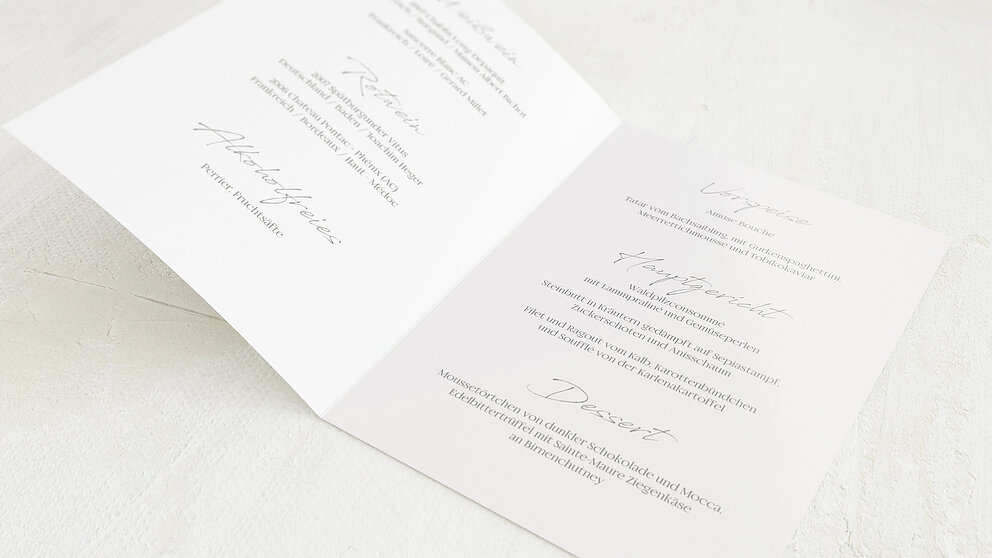 Weißwein
2002 Chablis Long Depaquit
Frankreich / Burgund / Maison Albert Bichot
Sancerre Blanc AC
Frankreich / Loire / Gérard Millet
Rotwein
2007 Spätburgunder Vitus
Deutschland / Baden / Joachim Heger
2006 Chateau Pontac - Phénix (AC)
Frankreich / Bordeaux / Haut - Medoc
Alkoholfreies
Perrier, Fruchtsäfte
Vorspeise
Amuse Bouche
Tatar vom Bachsaibling, mit Gurkenspaghettini,
Meerrettichmousse und Tobikokaviar
Hauptgericht
Waldpilzconsommé
mit Lammpraline und Gemüseperlen
Steinbutt in Kräutern gedämpft auf Sepiastampf,
Zuckerschoten und Anisschaum
Filet und Ragout vom Kalb, Karottenbündchen
und Soufflé von der Karlenakartoffel
Dessert
Moussetörtchen von dunkler Schokolade und Mocca,
Edelbittertrüffel mit Sainte-Maure Ziegenkäse
an Birnenchutney